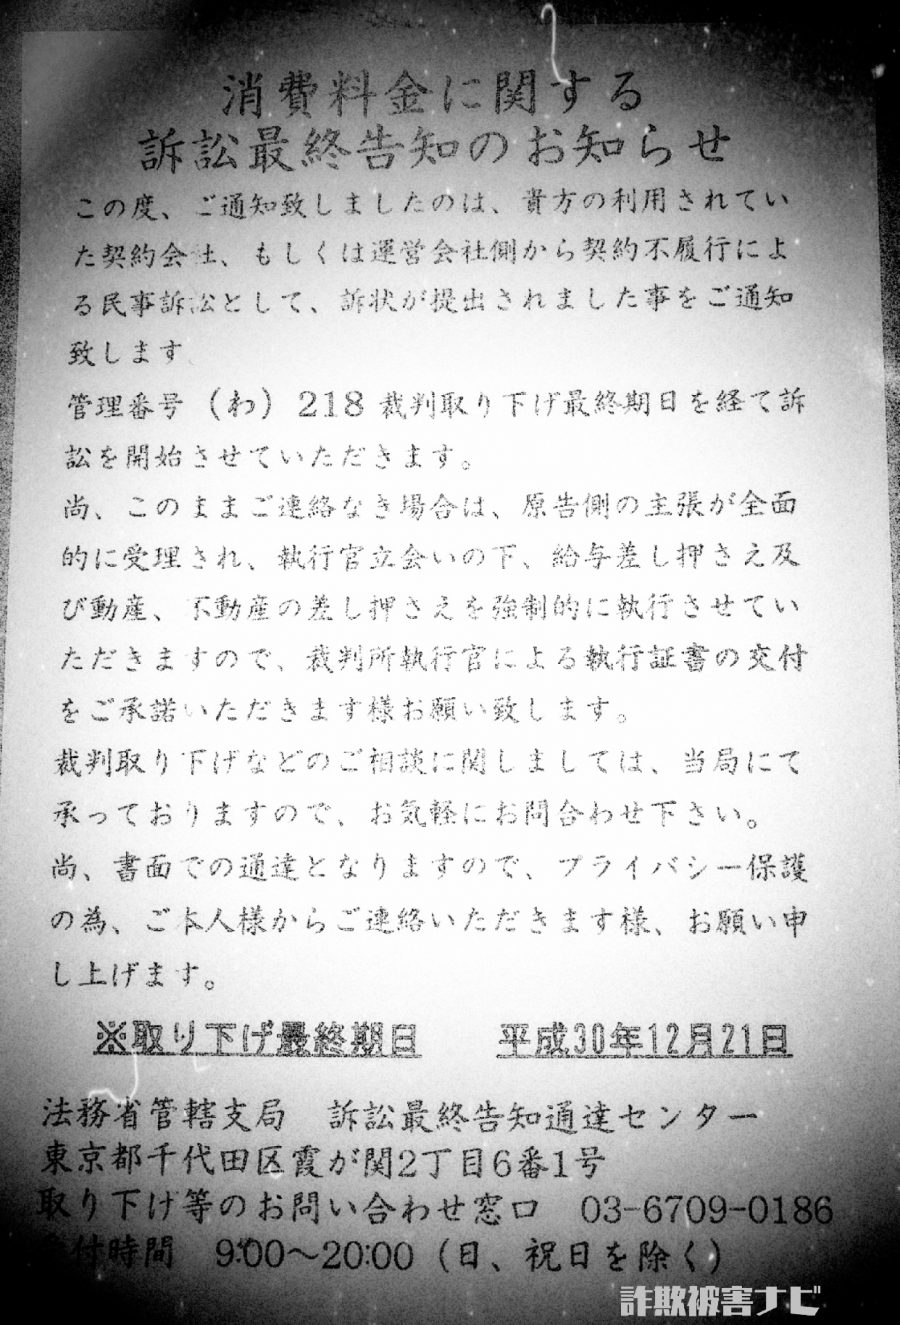 消費料金に関する
訴訟最終告知のお知らせ
この度、ご通知致しましたのは、貴方の利用されてい
た契約会社、もしくは運営会社側から契約不履行によ
る民事訴訟として、訴状が提出されました事をご通知
致します
管理番号（わ）218 裁判取り下げ最終期日を経て訴
訟を開始させていただきます。
尚、このままご連絡なき場合は、原告側の主張が全面
的に受理され、執行官立会いの下、給与差し押さえ及
び動産、不動産の差し押さえを強制的に執行させてい
ただきますので、裁判所執行官による執行証書の交付
をご承諾いただきます様お願い致します。
裁判取り下げなどのご相談に関しましては、当局にて
承っておりますので、お気軽にお問合わせ下さい。
尚、書面での通達となりますので、プライバシー保護
の為、ご本人様からご連絡いただきます様、お願い申
し上げます。
※取り下げ最終期日　平成30年12月21日
法務省管轄支局　訴訟最終告知通達センター
東京都千代田区霞が関2丁目6番1号
取り下げ等のお問い合わせ窓口　03-6709-0186
付時間　9:00～20:00（日、祝日を除く）
詐欺被害ナビ